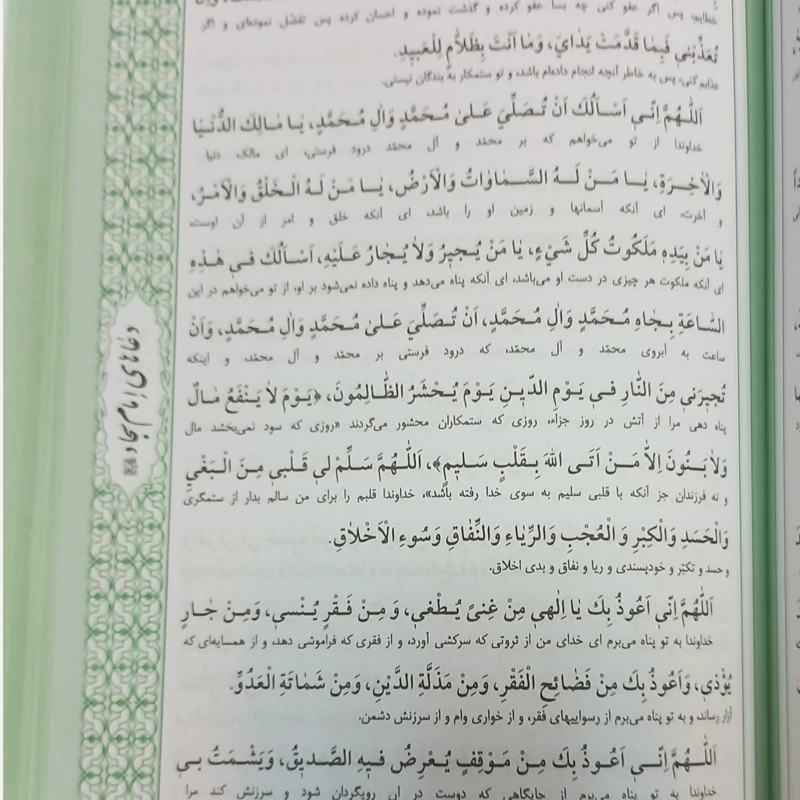 خطایم، پس اگر عفو کنی چه بسا عفو کرده و گذشت نموده و احسان کرده پس تفضّل نموده‌ای و اگر
تُعَذِّبْنٖي فَبِمٰا قَدَّمَتْ يَدٰايَ، وَمٰا اَنْتَ بِظَلّٰامٍ لِلْعَبيدِ.
عذابم کنی، پس به خاطر آنچه انجام داده‌ام باشد، و تو ستمکار به بندگان نیستی.
اَللّٰهُمَّ اِنّٖي اَسْاَلُكَ اَنْ تُصَلِّيَ عَلىٰ مُحَمَّدٍ وَاٰلِ مُحَمَّدٍ، يٰا مٰالِكَ الدُّنْيٰا
خداوندا از تو می‌خواهم که بر محمّد و آل محمّد درود فرستی، ای مالک دنیا
وَالْاٰخِرَةِ، يٰا مَنْ لَهُ السَّمٰاوٰاتُ وَالْاَرْضُ، يٰا مَنْ لَهُ الْخَلْقُ وَالْاَمْرُ،
و آخرت، ای آنکه آسمانها و زمین او را باشد، ای آنکه خلق و امر از آن اوست،
يٰا مَنْ بِيَدِهٖ مَلَكُوتُ كُلِّ شَيْءٍ، يٰا مَنْ يُجيرُ وَلاٰ يُجٰارُ عَلَيْهِ، اَسْاَلُكَ فٖي هٰذِهِ
ای آنکه ملکوت هر چیزی در دست او می‌باشد، ای آنکه پناه می‌دهد و پناه داده نمی‌شود بر او، از تو می‌خواهم در این
السّٰاعَةِ بِجٰاهِ مُحَمَّدٍ وَاٰلِ مُحَمَّدٍ، اَنْ تُصَلِّيَ عَلىٰ مُحَمَّدٍ وَاٰلِ مُحَمَّدٍ، وَاَنْ
ساعت به آبروی محمّد و آل محمّد، که درود فرستی بر محمّد و آل محمّد، و اینکه
تُجيرَنٖي مِنَ النّٰارِ فٖي يَوْمِ الدّٖينِ يَوْمَ يُحْشَرُ الظّٰالِمُونَ، «يَوْمَ لاٰ يَنْفَعُ مٰالٌ
پناه دهی مرا از آتش در روز جزاء، روزی که ستمکاران محشور می‌گردند «روزی که سود نمی‌بخشد مال
وَلاٰ بَنُونَ اِلاّٰ مَنْ اَتَى اللهَ بِقَلْبٍ سَليمٍ»، اَللّٰهُمَّ سَلِّمْ لٖي قَلْبٖي مِنَ الْبَغْيِ
و نه فرزندان جز آنکه با قلبی سلیم به سوی خدا رفته باشد»، خداوندا قلبم را برای من سالم بدار از ستمگری
وَالْحَسَدِ وَالْكِبْرِ وَ الْعُجْبِ وَالرِّيٰاءِ وَالنِّفٰاقِ وَسُوءِ الْاَخْلاٰقِ.
و حسد و تکبّر و خودپسندی و ریا و نفاق و بدی اخلاق.
اَللّٰهُمَّ اِنّٖي اَعُوذُ بِكَ يٰا اِلٰهٖي مِنْ غِنىً يُطْغٖي، وَ مِنْ فَقْرٍ يُنْسٖي، وَمِنْ جٰارٍ
خداوندا به تو پناه می‌برم ای خدای من از ثروتی که سرکشی آورد، و از فقری که فراموشی دهد، و از همسایه‌ای که
يُؤْذٖي، وَاَعُوذُ بِكَ مِنْ فَضٰائِحِ الْفَقْرِ، وَمِنْ مَذَلَّةِ الدَّيْنِ، وَمِنْ شَمٰاتَةِ الْعَدُوِّ.
آزار رساند، و به تو پناه می‌برم از رسواییهای فقر، و از خواری وام و از سرزنش دشمن.
اَللّٰهُمَّ اِنّٖي اَعُوذُ بِكَ مِنْ مَوْقِفٍ يُعْرِضُ فٖيهِ الصَّديقُ، وَيَشْمَتُ بٖي
خداوندا به تو پناه می‌برم از جایگاهی که دوست در آن رویگردان شود و سرزنش کند مرا